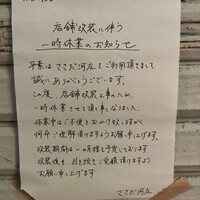 店舗改装に伴う
一時休業のお知らせ
平素は ささだ河左をご利用頂きまして
誠にありがとうございます。
この度、店舗改装工事のため、
一時休業させて頂く事となりました。
休業中はご不便をおかけ致しますが
何卒ご理解頂けますようお願い申し上げます。
改装期間は一ヶ月程を予定しております。
改装後も引き続きご愛顧頂けますよう
お願い申し上げます。
ささだ河左